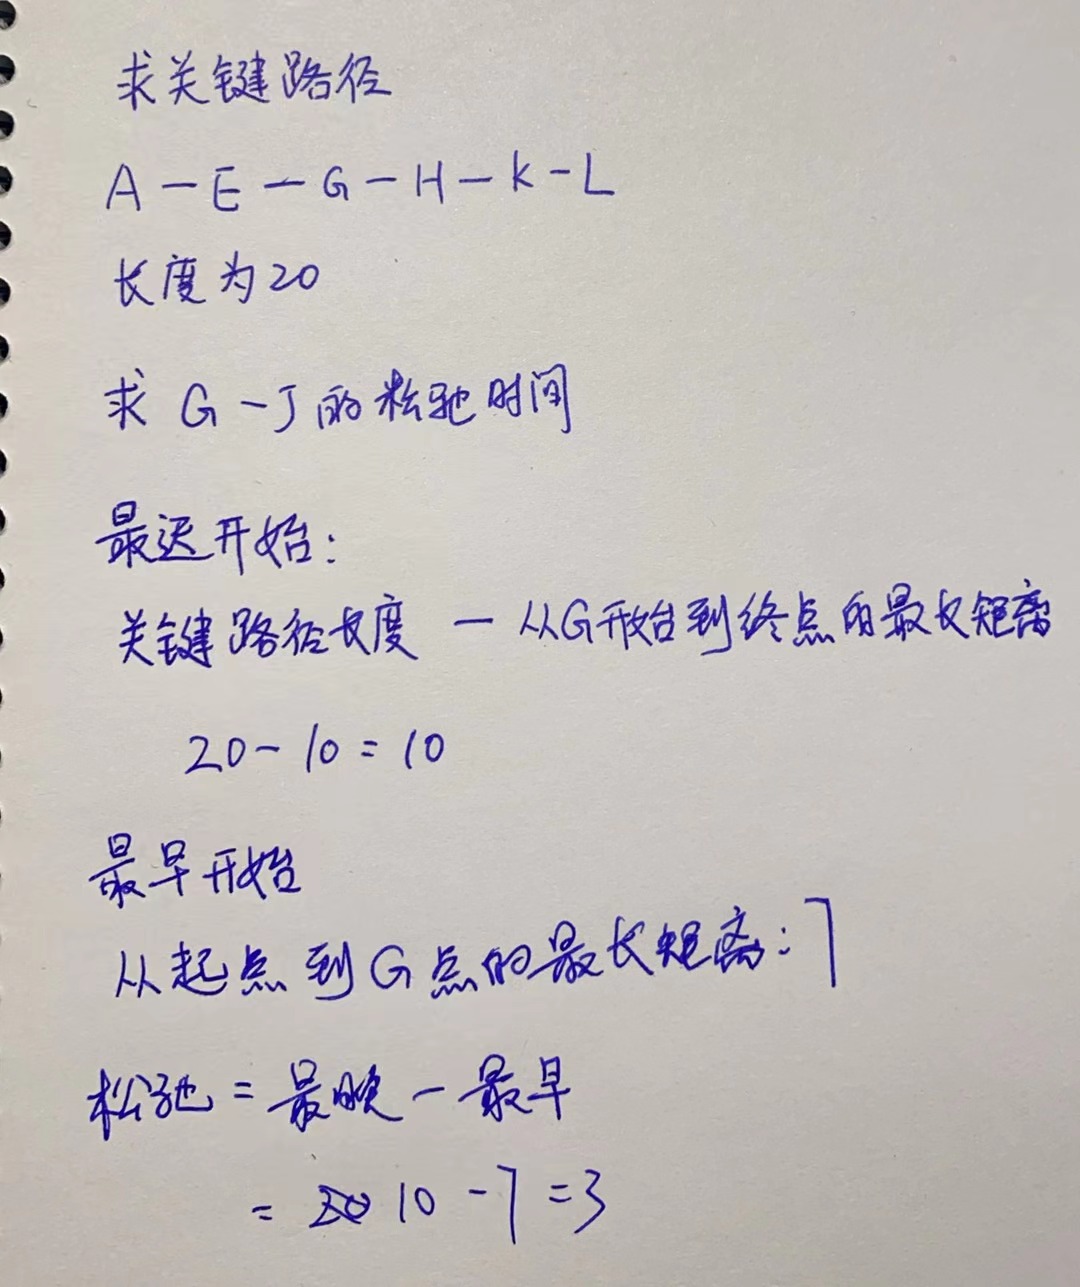 求关键路径
A－E－G－H－K－L
长度为20
求 G－J的松驰时间
最迟开始:
关键路径长度 － 从G开始到终点的最长距离
20－10＝10
最早开始
从起点到G点的最长距离:7
松弛＝最晚－最早
＝10－7＝3